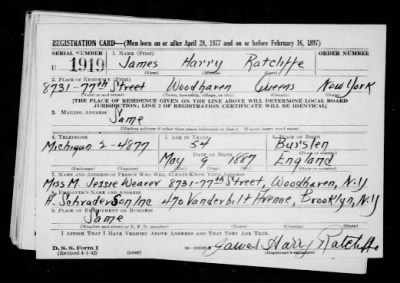 REGISTRATION CARD—(Men born on or after April 28, 1877 and on or before February 16, 1897)
SERIAL NUMBER 1. NAME (Print) ORDER NUMBER
U 1919 James Harry Ratcliffe
(First) (Middle) (Last)
2. PLACE OF RESIDENCE (Print)
8731-77th Street Woodhaven Queens New York
(Number and street) (Town, township, village, or city) (County) (State)
[THE PLACE OF RESIDENCE GIVEN ON THE LINE ABOVE WILL DETERMINE LOCAL BOARD
JURISDICTION; LINE 2 OF REGISTRATION CERTIFICATE WILL BE IDENTICAL]
3. MAILING ADDRESS
Same
[Mailing address if other than place indicated on line 2. If same insert word same]
4. TELEPHONE 5. AGE IN YEARS 6. PLACE OF BIRTH
54 Burslen
Michigan 2-4877 DATE OF BIRTH
May 9 1887 England
7. NAME AND ADDRESS OF PERSON WHO WILL ALWAYS KNOW YOUR ADDRESS
Mrs M. Jessie Wearer 8731-77th Street, Woodhaven, N.Y
8. EMPLOYER'S NAME AND ADDRESS
A. Schrader Son Inc 470 Vanderbilt Avenue, Brooklyn, N.Y
9. PLACE OF EMPLOYMENT OR BUSINESS
Same
I AFFIRM THAT I HAVE VERIFIED ABOVE ANSWERS AND THAT THEY ARE TRUE.
D. S. S. Form 1
(Revised 4-1-42) James Harry Ratcliffe